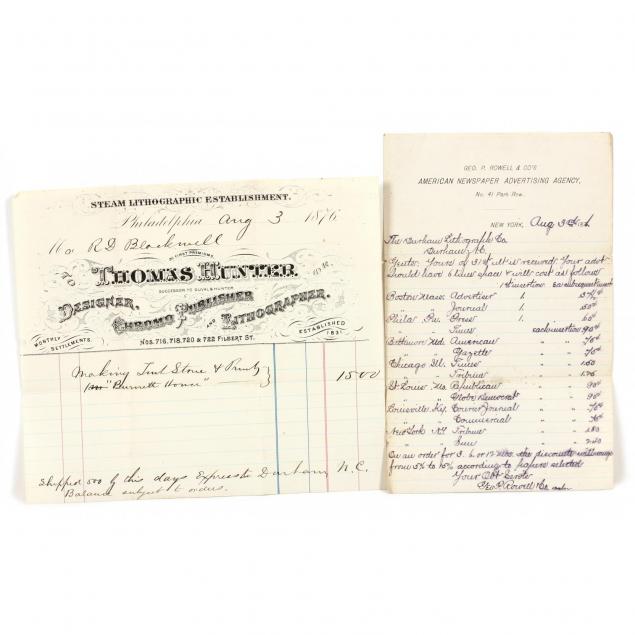 STEAM LITHOGRAPHIC ESTABLISHMENT.
Philadelphia Aug 3 1876
R D Blackwell
TO
21 FIRST PREMIUMS.
THOMAS HUNTER. DR.
SUCCESSOR TO DUVAL & HUNTER
DESIGNER, CHROMO PUBLISHER AND LITHOGRAPHER.
MONTHLY SETTLEMENTS.
ESTABLISHED 1831.
NOS. 716, 718, 720 & 722 FILBERT ST.
Making Tint Stone & Printg
"Burnett House"
1500
Shipped 500 by this days Express to Durham N.C.
Balance subject to orders.
GEO. P. ROWELL & CO'S
AMERICAN NEWSPAPER ADVERTISING AGENCY,
No. 41 Park Row.
NEW YORK, Aug 3rd
The Durham Lithograph Co.
Durham N.C.
Yours of 31st ult is received. Your advt
should have 6 lines space & will cost as follows
1st insertion Each subsequent insert
Boston Mass. Advertiser
" " Journal
Phila Pa. Press
" " Times each insertion 90¢
Baltimore Md. American " "
" " Gazette " "
Chicago Ill. Times " "
" " Tribune " "
St. Louis Mo. Republican " " 90¢
" " Globe Democrat " " 90¢
Louisville Ky. Courier Journal " "
" " Commercial " "
New York NY Tribune " "
" " Sun " " 240
On an order for 3. 6. or 12 Mos. the discounts will range
from 5% to 15% according to papers selected
Your Obt Servts
Geo P. Rowell & Co